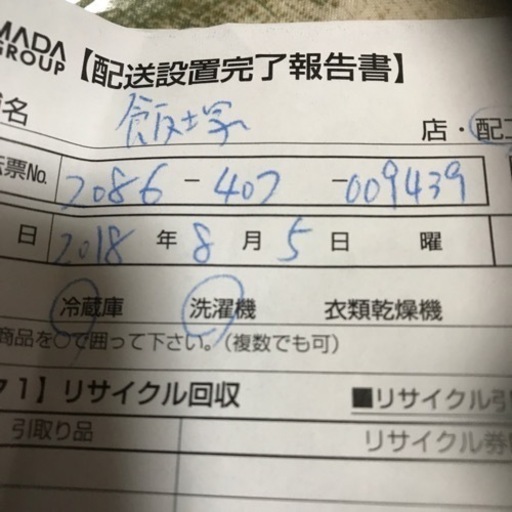 MADA
GROUP
【配送設置完了報告書】
名 飯塚 店・配工
票No. 2086-407-009439
日 2018年8月5日 曜
冷蔵庫 洗濯機 衣類乾燥機
商品を〇で囲って下さい。(複数でも可)
1】リサイクル回収 ■リサイクル引
引取り品 リサイクル券